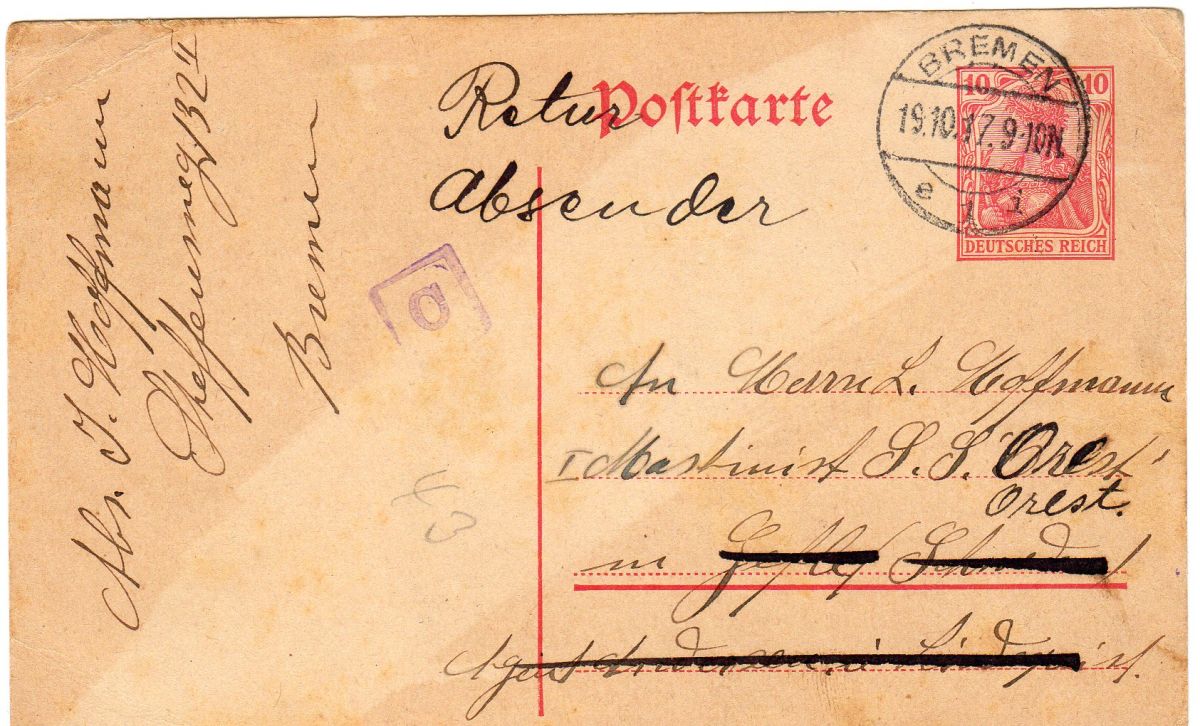 Abs. J. Hoffmann
132 II
Bremen
Retur
Absender
Postkarte
BREMEN
19.10.17. 9-10N.
e 1 i
10 10
DEUTSCHES REICH
C
An Herrn L. Hoffmann
I Maschinist S. S. "Orest"
Orest.
in Gefle / Schweden
Agent